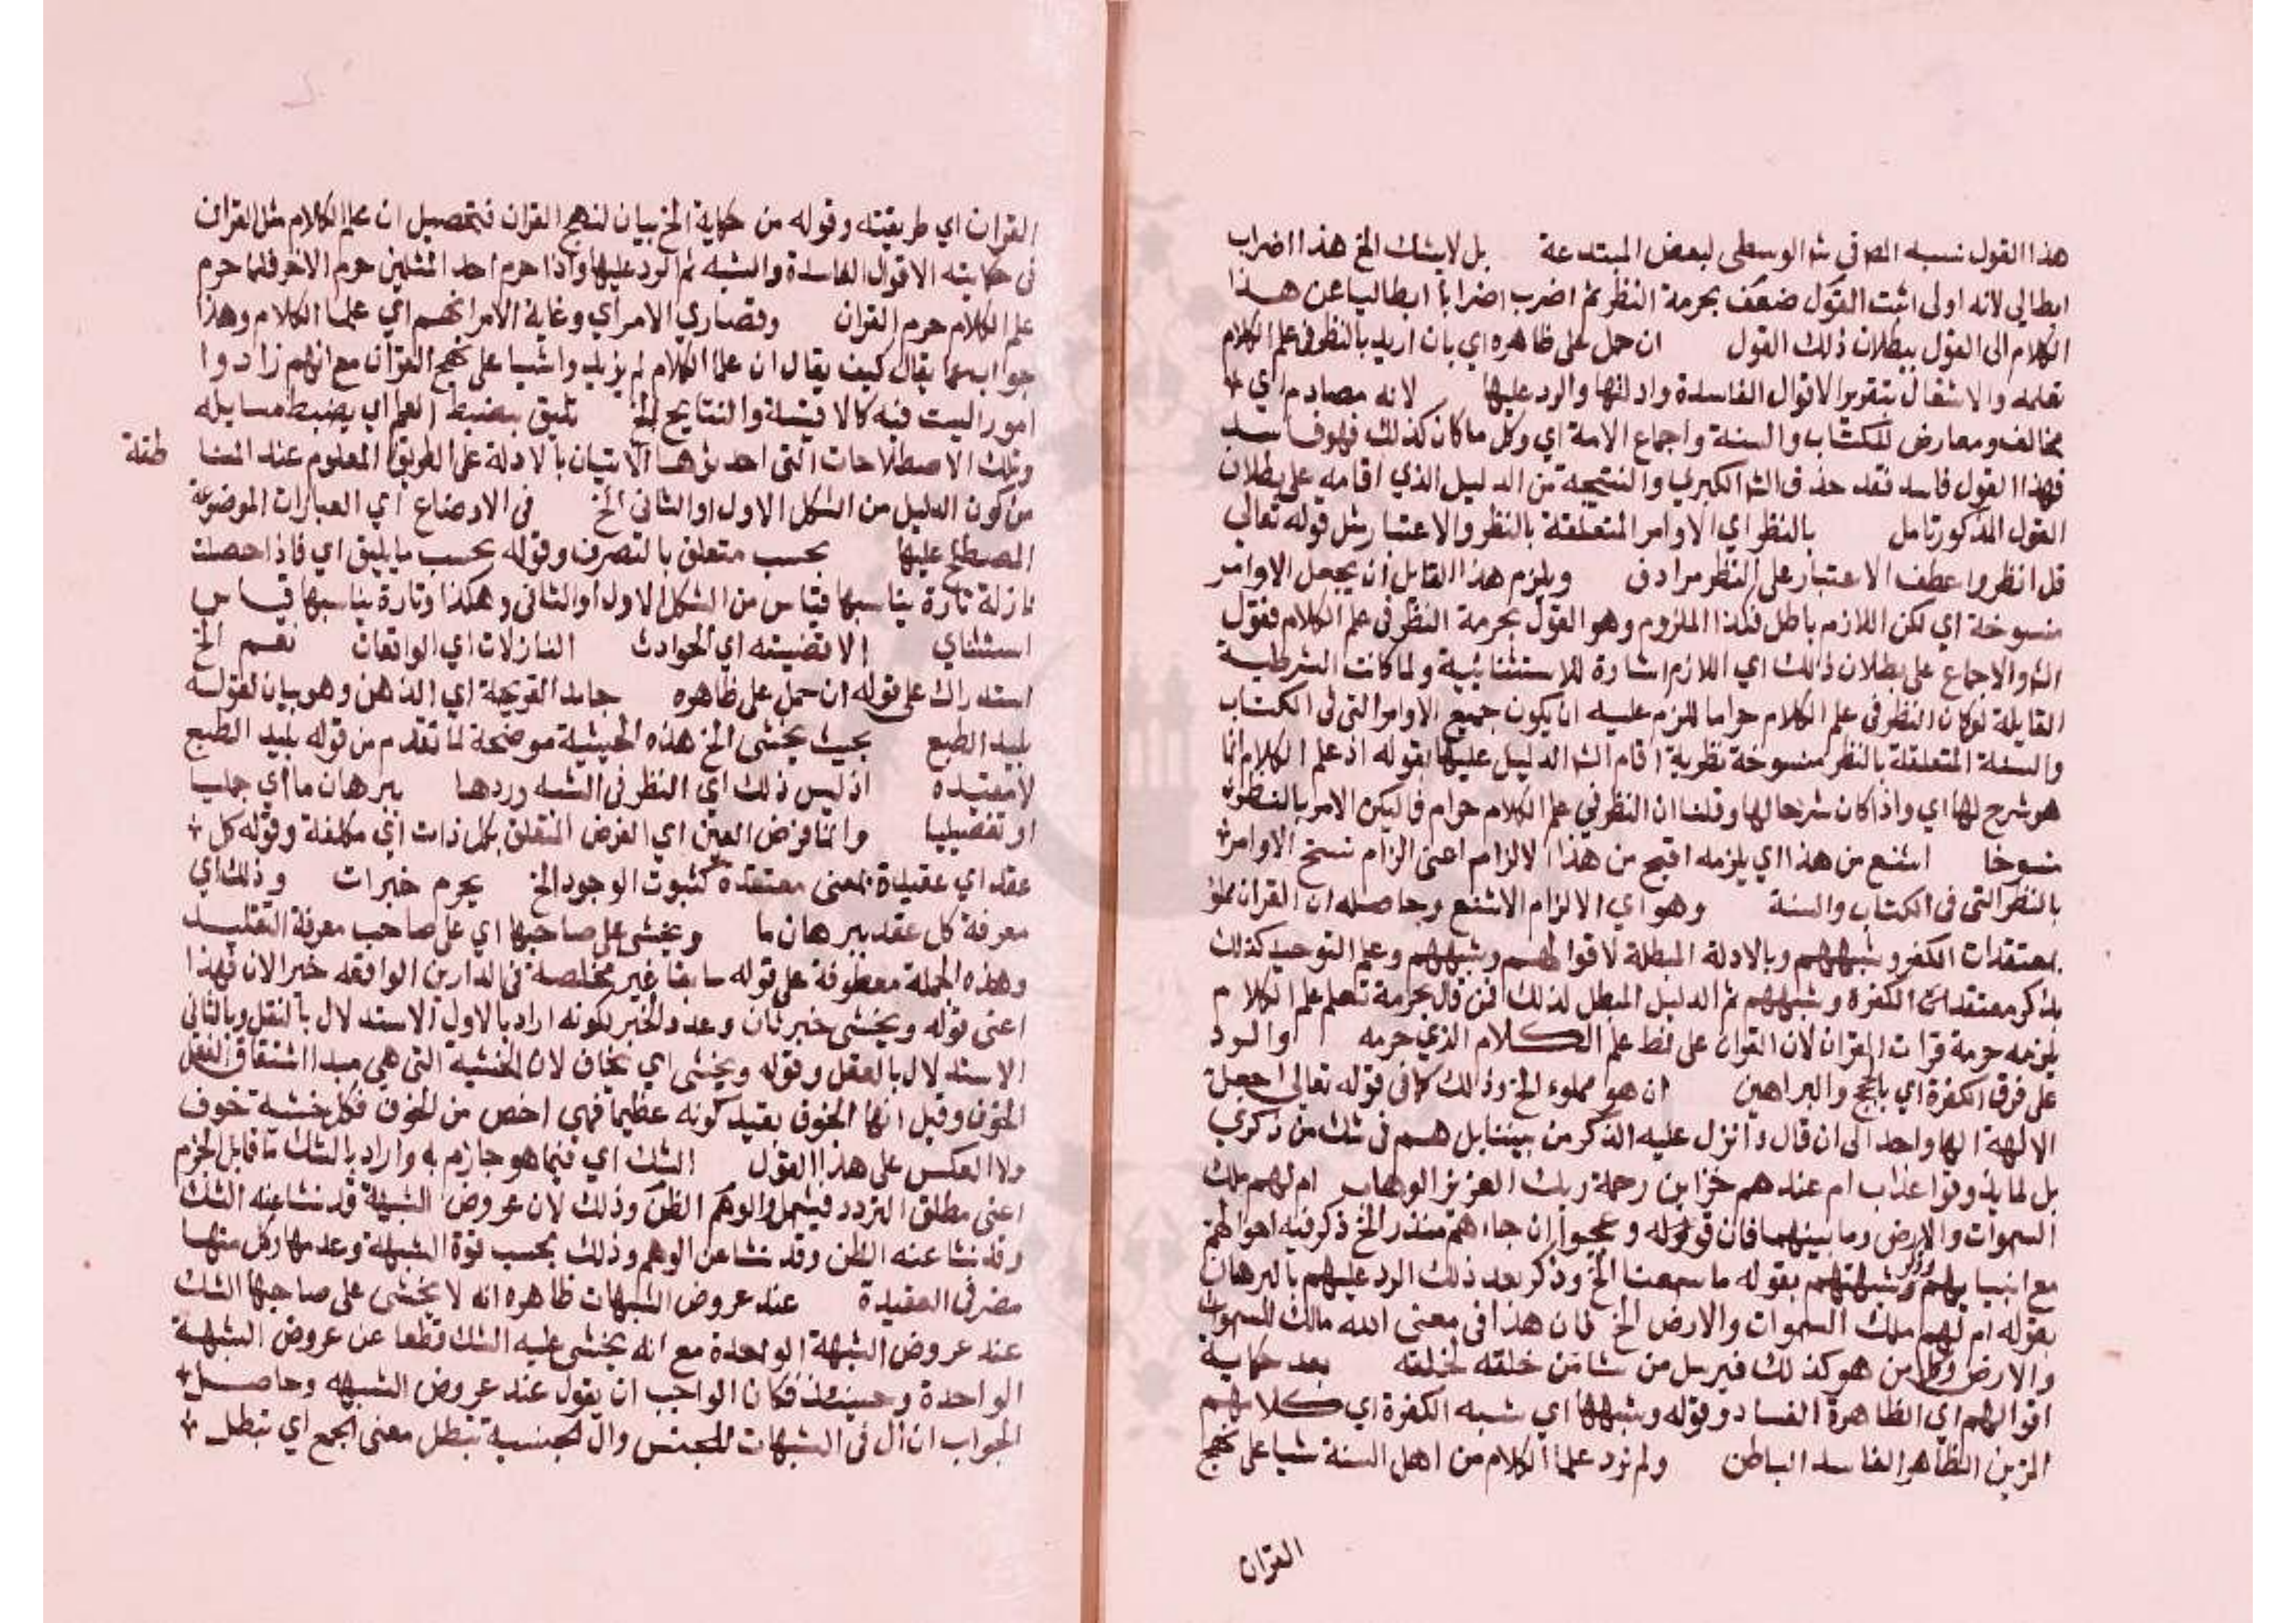 هذا القول نسبه المص في شر الوسطى لبعض المبتدعة بل لا يشك الخ هذا اضراب
ابطالي لانه اولى اثبت القول ضعف بحرمة النظر ثم اضرب اضرابا ابطاليا عن هذا
الكلام الى القول ببطلان ذلك القول ان حمل على ظاهره اي بان اريد بالنظر في علم الكلام
تعلمه والاشتغال بتقرير الاقوال الفاسدة وادلتها والرد عليها لانه مصادم اي
مخالف ومعارض للكتاب والسنة واجماع الامة اي وكل ما كان كذلك فهو فاسد
فهذا القول فاسد فقد حذف الش الكبري والنتيجة من الدليل الذي اقامه على بطلان
القول المذكور تامل بالنظر اي الاوامر المتعلقة بالنظر والاعتبار مثل قوله تعالي
قل انظروا عطف الاعتبار على النظر مرادف ويلزم هذا القايل ان يجعل الاوامر
منسوخة اي لكن اللازم باطل فكذا الملزوم وهو القول بحرمة النظر في علم الكلام فقول
الش والاجماع على بطلان ذلك اي اللازم اشارة للاستثنائية ولما كانت الشرطية
القايلة لو كان النظر في علم الكلام حراما للزم عليه ان يكون جميع الاوامر التي في الكتاب
والسنة المتعلقة بالنظر منسوخة نظرية اقام الش الدليل عليها بقوله اذ علم الكلام انما
هو شرح لها اي واذا كان شرحا لها وقلنا ان النظر في علم الكلام حرام فاليكن الامر بالنظر
منسوخا اشنع من هذا اي يلزمه اقبح من هذا الالزام اعني الزام نسخ الاوامر
بالنظر التي في الكتاب والسنة وهو اي الالزام الاشنع وحاصله ان القران مملؤ
بمعتقدات الكفر وشبههم وبالادلة المبطلة لاقوالهم وشبههم وعلم التوحيد كذلك
يذكر معتقدات الكفرة وشبههم ثم الدليل المبطل لذلك فمن قال بحرمة تعلم علم الكلام
يلزمه حرمة قرات القران لان القران على نمط علم الكلام الذي حرمه والرد
على فرق الكفرة اي بالحجج والبراهين ان هو مملوء الخ وذلك كما في قوله تعالى اجعل
الالهة الها واحد الى ان قال أانزل عليه الذكر من بيننا بل هم في شك من ذكري
بل لما يذوقوا عذاب ام عندهم خزاين رحمة ربك العزيز الوهاب ام لهم ملك
السموات والارض وما بينهما فان قوله وعجبوا ان جاءهم منذر الخ ذكر فيه احوالهم
مع انبيايهم وذكر شبهتهم بقوله ما سمعنا الخ وذكر بعد ذلك الرد عليهم بالبرهان
بقوله ام لهم ملك السموات والارض الخ فان هذا في معنى الله مالك للسموات
والارض وكل من هو كذلك فيرسل من شا من خلقه لخلقه بعد حكاية
اقوالهم اي الظاهرة الفساد وقوله وشبهها اي شبه الكفرة اي كلامهم
المزين الظاهر الفاسد الباطن ولم نزد علما الكلام من اهل السنة شيا على نهج
القران
القران اي طريقته وقوله من حكاية الخ بيان لنهج القران فتحصيل ان علم الكلام مثل القران
في حكايته الاقوال الفاسدة والشبه ثم الرد عليها واذا حرم احد المثلين حرم الاخر فلما حرم
علم الكلام حرم القران وقصاري الامر اي وغاية الامر انهم اي علما الكلام وهذا
جواب عما يقال كيف يقال ان علما الكلام لم يزيدوا شيا على نهج القران مع انهم زادوا
امورا ليست فيه كالاقيسة والنتايج الخ تليق بضبط العلم اي يضبط مسايله
وتلك الاصطلاحات التي احدثوها الاتيان بالادلة على الطريق المعلوم عند المنا طقة
من كون الدليل من الشكل الاول او الثاني الخ في الاوضاع اي العبارات الموضوعة
المصطلح عليها بحسب متعلق بالتصرف وقوله بحسب ما يليق اي فاذا حصلت
نازلة تارة يناسبها قياس من الشكل الاول او الثاني وهكذا وتارة يناسبها قياس
استثناي الاقضيته اي الحوادث النازلات اي الواقعات نعم الخ
استدراك على قوله ان حمل على ظاهره جامد القريحة اي الذهن وهو بيان لقوله
بليد الطبع بحيث يخشى الخ هذه الحيثية موضحة لما تقدم من قوله بليد الطبع
لا معتده اذ ليس ذلك اي النظر في الشبه وردها ببرهان ما اي جمليا
او تفصيليا وانما فرض العين اي الفرض المتعلق بكل ذات اي مكلفة وقوله كل
عقد اي عقيدة بمعنى معتقده كثبوت الوجود الخ يحرم خبرات وذلك اي
معرفة كل عقد ببرهان ما ويخشى على صاحبها اي على صاحب معرفة التقليد
وهذه الجملة معطوفة على قوله سابقا غير مخلصة في الدارين الواقعه خبر الان فهذا
اعني قوله ويخشى خبر ثان وعدد الخبر لكونه اراد بالاول الاستدلال بالنقل وبالثاني
الاستدلال بالعقل وقوله ويخشى اي يخاف لان الخشية التي هي مبدا اشتقاق الفعل
الخوف وقيل انها الخوف بقيد كونه عظيما فهي اخص من الخوف فكل خشية خوف
ولا العكس على هذا القول الشك اي فيما هو جازم به واراد بالشك ما قابل الجزم
اعني مطلق التردد فيشمل والوهم الظن وذلك لان عروض الشبهة قد نشا عنه الشك
وقد نشا عنه الظن وقد نشا عن الوهم وذلك بحسب قوة الشبهة وعدمها وكل منها
مضر في العقيدة عند عروض الشبهات ظاهره انه لا يخشى على صاحبها الشك
عند عروض الشبهة الواحدة مع انه يخشى عليه الشك قطعا عن عروض الشبهة
الواحدة وحينئذ فكان الواجب ان يقول عند عروض الشبهه وحاصل
الجواب ان ال في الشبهات للجنس وال الجنسية تبطل معنى الجمع اي تبطل